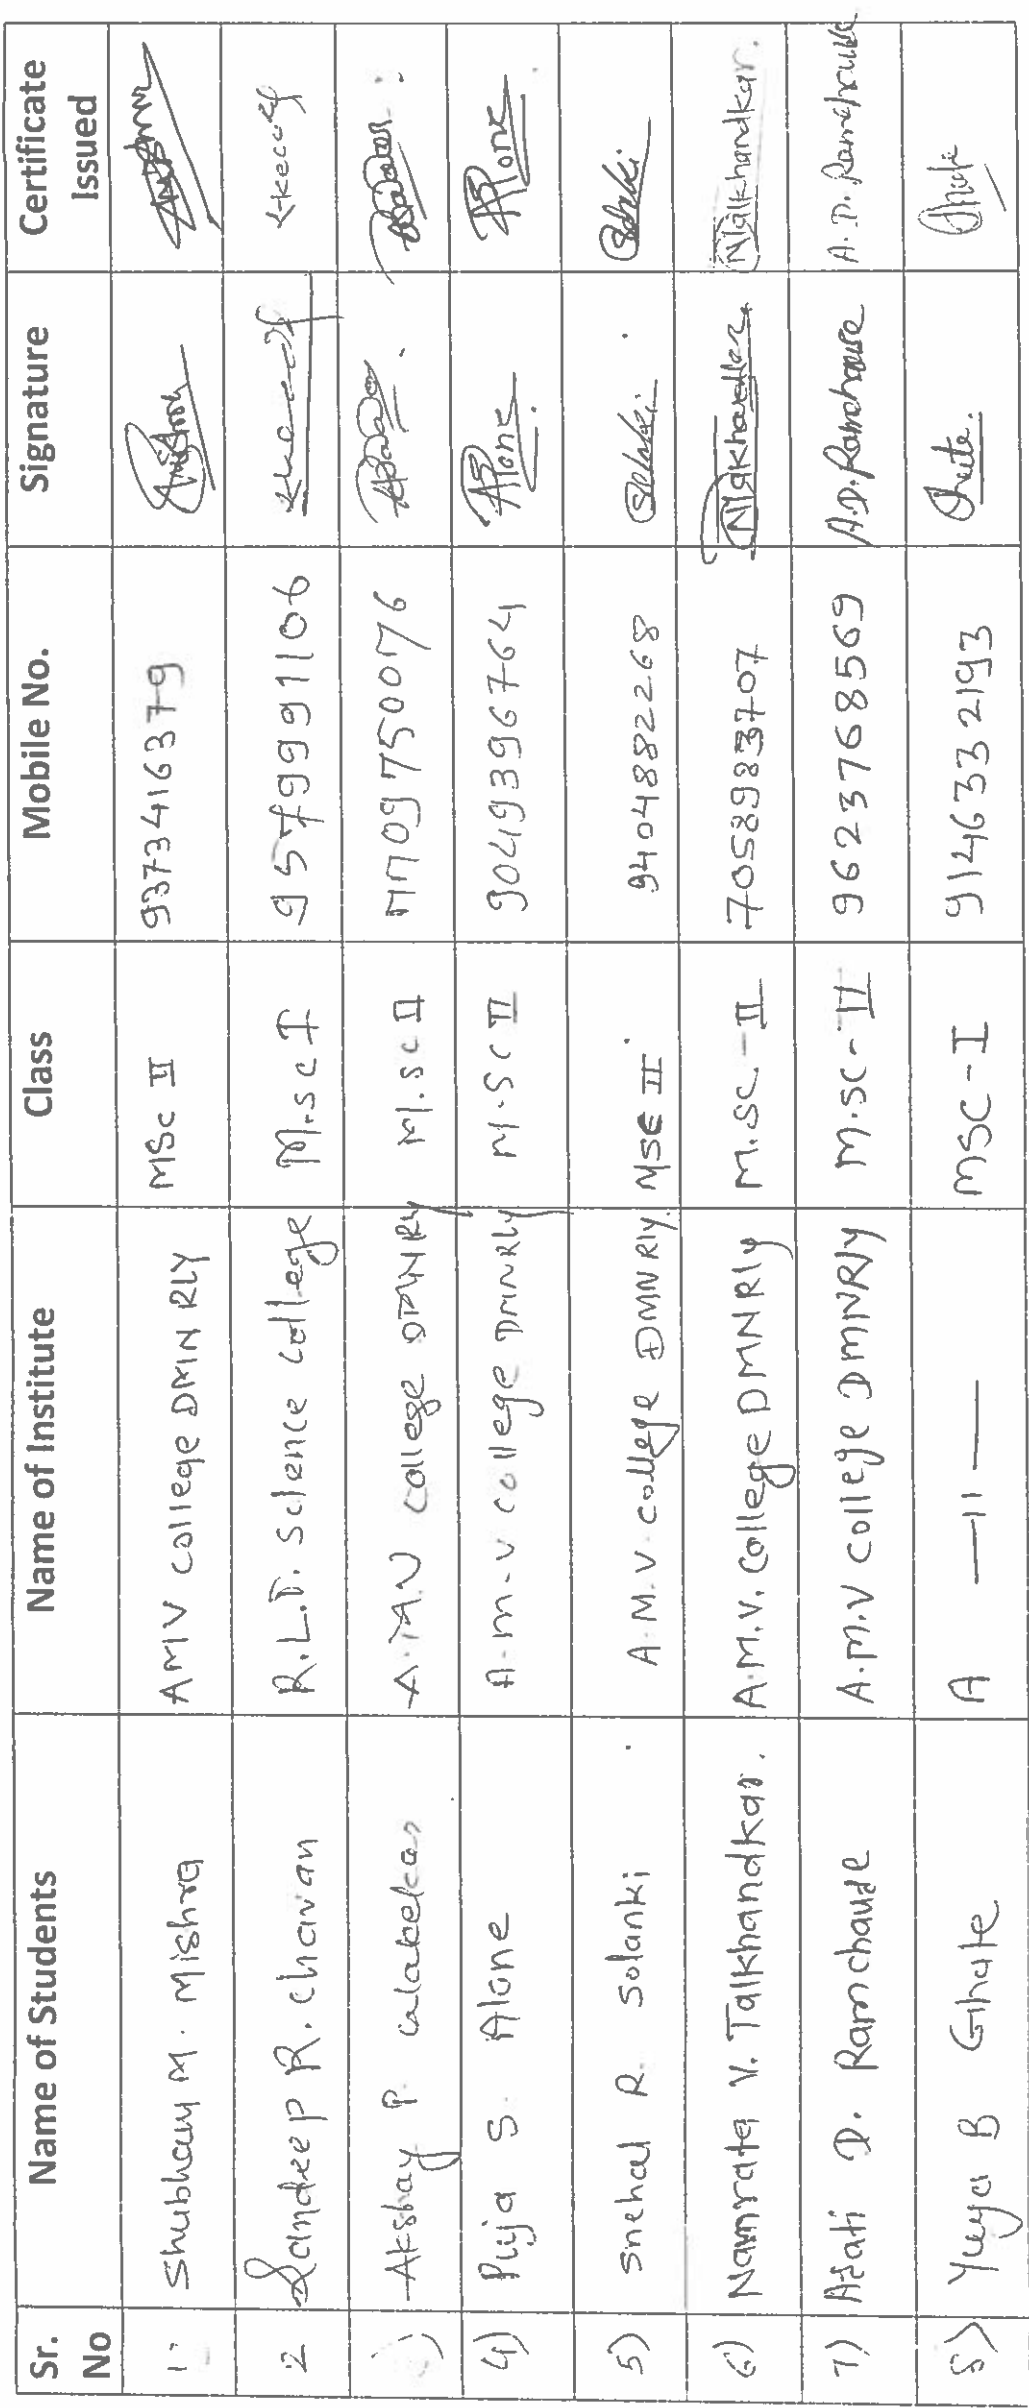 Sr. No Name of Students Name of Institute Class Mobile No. Signature Certificate Issued
1 Shubham M. Mishra AMV College DMN RLY MSc II 9373416379
2 Sandeep R. Chavan R.L.T. Science College M.sc I 9579991106
Akshay P. A.M.V College DMN Rly M.sc II 7709750076
4) Puja S. Alone A.m.v College DMNRly M.SC II 9049396764 Alone Alone
5) Snehal R. Solanki A.M.V. College DMN Rly. MSC II 9404882268
6) Namrata V. Talkhandkar. A.M.V. College DMN Rly M.SC - II 7058983707 Talkhandkar.
7) Arati D. Ramchaude A.M.V College DMNRly M.SC - II 9623768569 A.D. Ramchaude A.D. Ramchaude
8) B Ghate A —11— MSC - I 9146332193